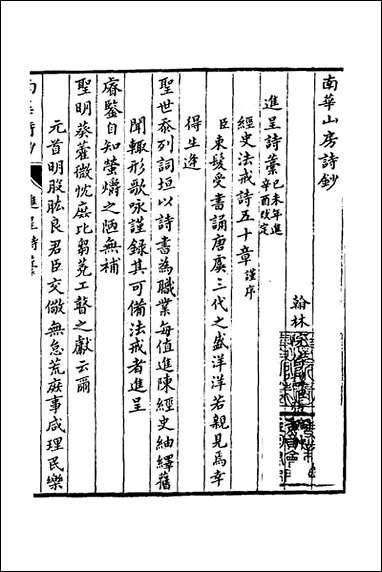 南華山房詩鈔
翰林
進呈詩藁己未年進辛酉改定
經史法戒詩五十章謹序
臣束髮受書誦唐虞三代之盛洋洋若親見焉幸
得生逢
聖世忝列詞垣以詩書為職業每值進陳經史紬繹舊
聞輒形歌咏謹録其可備法戒者進呈
睿鑒自知螢爝之陋無補
聖明葵藿微忱庶比芻蕘工瞽之獻云爾
元首明股肱良君臣交儆無怠荒庶事咸理民樂
進呈詩藁